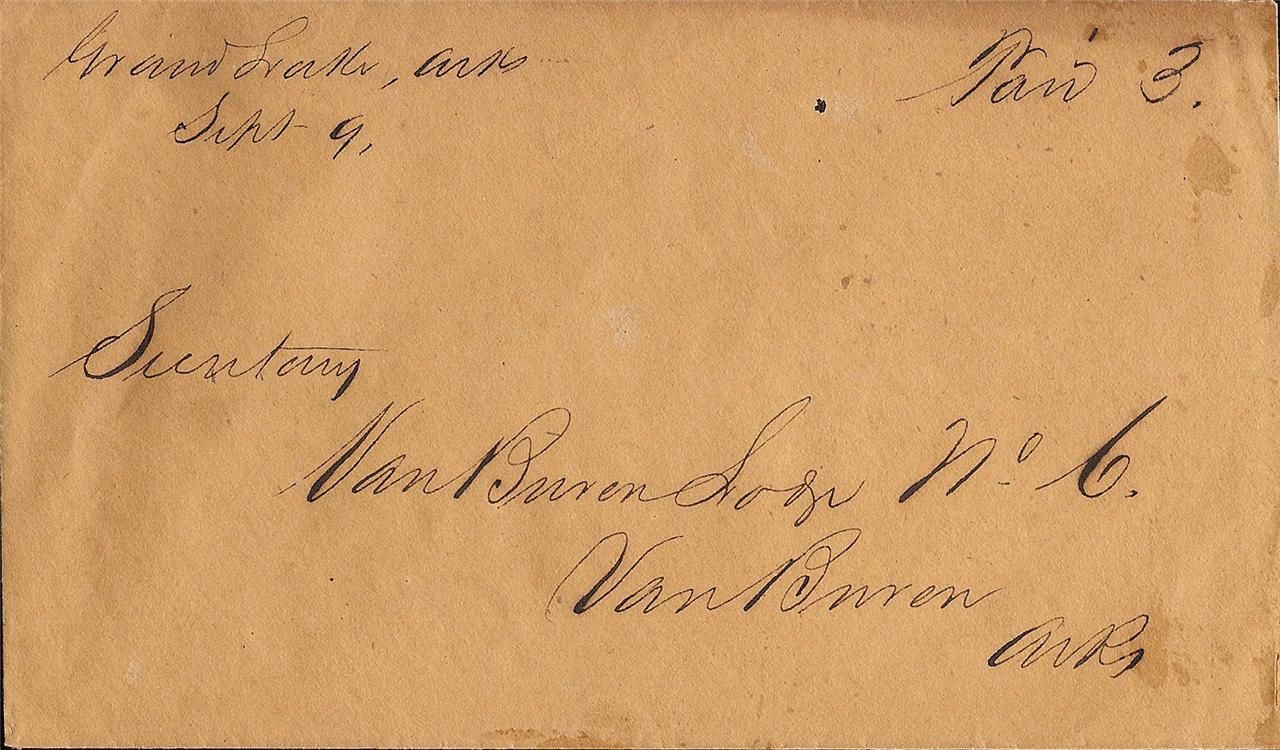 Grand Lake, Arks
Sept 9,
Paid 3.
Secretary
Van Buren Lodge No 6.
Van Buren
Arks